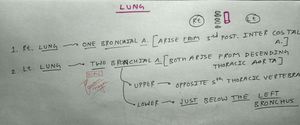 LUNG
Rt Lt
1. Rt. LUNG → ONE BRONCHIAL A. [ARISE FROM 3rd POST. INTER COSTAL A.]
2. Lt. LUNG → TWO BRONCHIAL A [BOTH ARISE FROM DESENDING THORACIC AORTA]
UPPER → OPPOSITE 5th THORACIC VERTEBRA
LOWER → JUST BELOW THE LEFT BRONCHUS